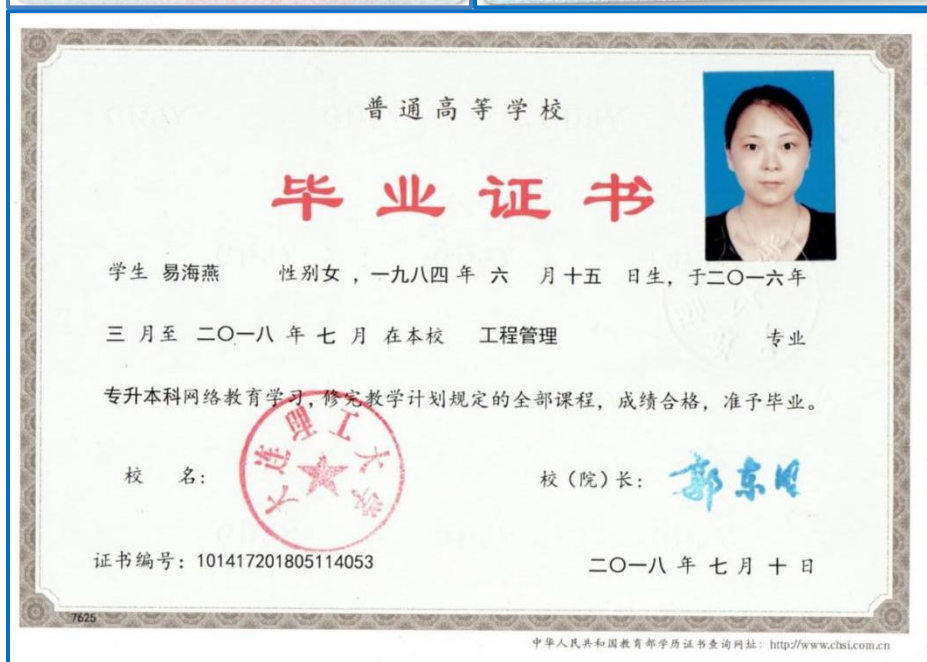 普通高等学校
毕业证书
学生 易海燕 性别女 ,一九八四 年 六 月十五 日生, 于二〇一六年
三 月至 二〇一八 年 七 月 在本校 工程管理 专业
专升本科网络教育学习, 修完教学计划规定的全部课程, 成绩合格, 准予毕业。
大连理工大学
校 名: 校(院)长: 郭东明
证书编号: 101417201805114053 二〇一八 年 七 月 十 日
7625
中华人民共和国教育部学历证书查询网址: http://www.chsi.com.cn